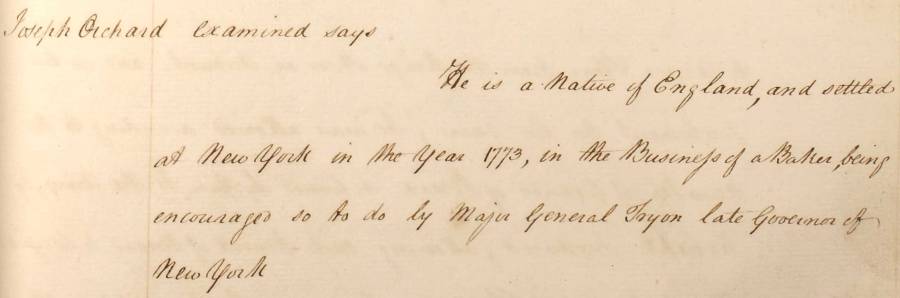 Joseph Orchard examined says
He is a Native of England, and settled
at New York in the Year 1773, in the Business of a Baker, being
encouraged so to do by Major General Tryon late Governor of
New York